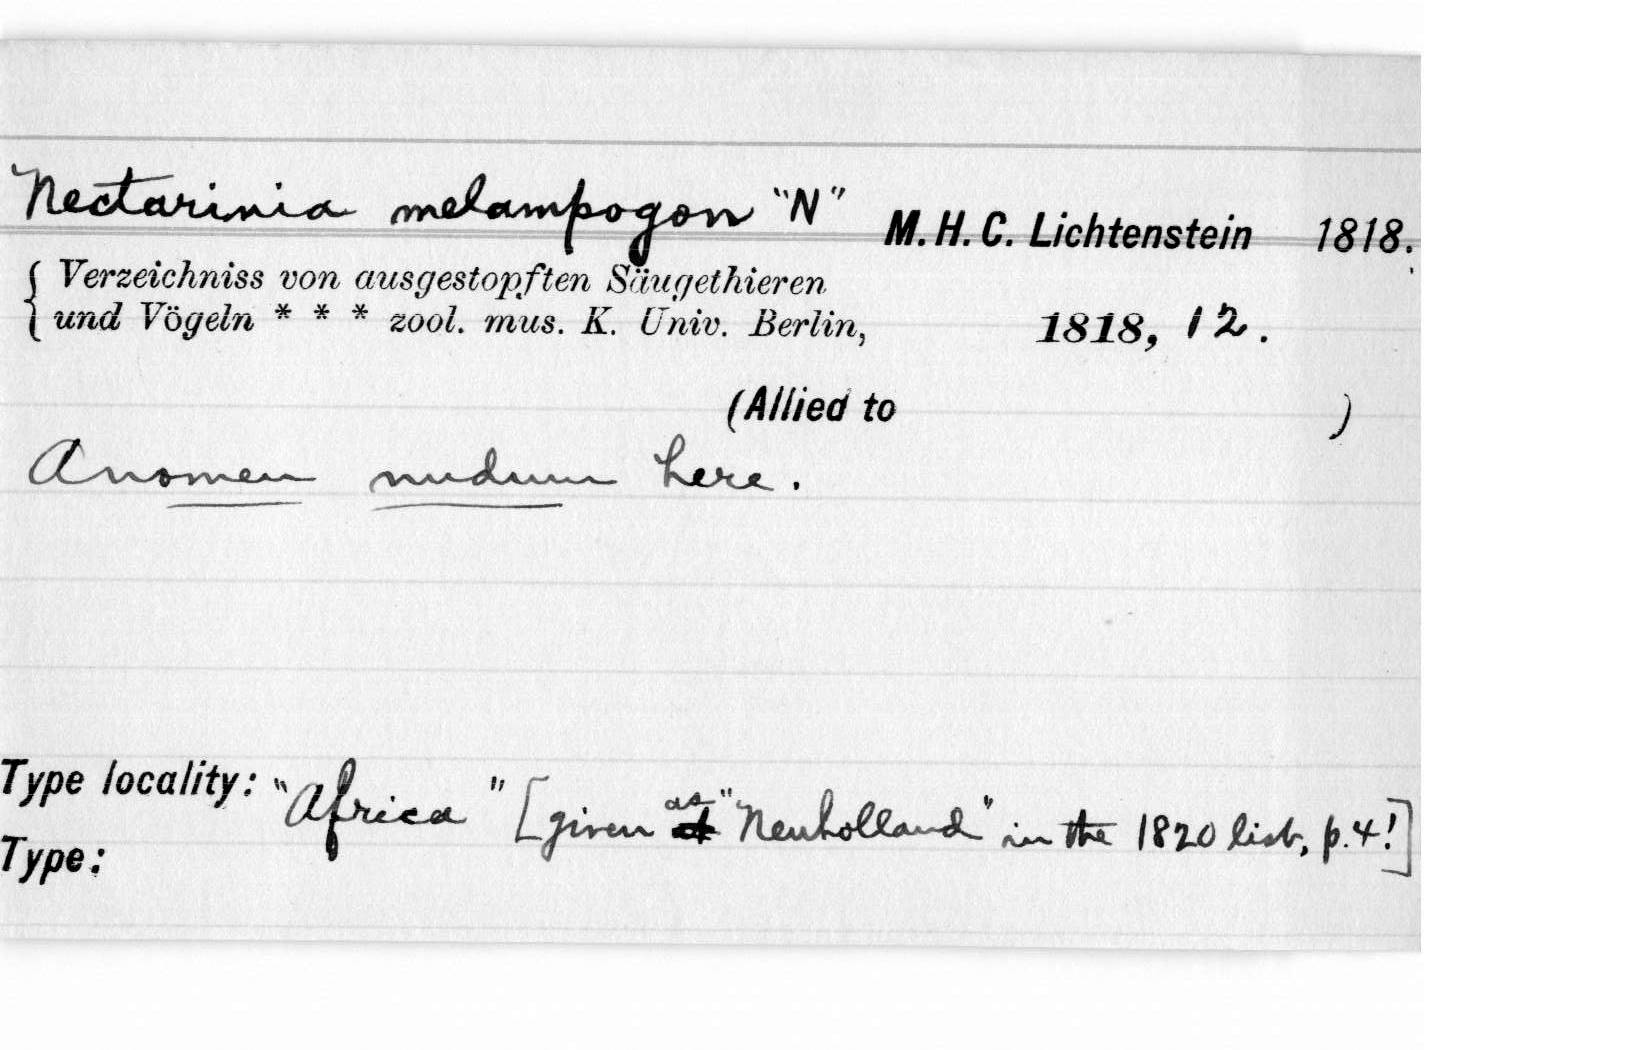 Nectarinia melampogon "N" M. H. C. Lichtenstein 1818.
Verzeichniss von ausgestopften Säugethieren
und Vögeln * * * zool. mus. K. Univ. Berlin, 1818, 12.
(Allied to )
A nomen nudum here.
Type locality: "Africa" [given as "Neuholland" in the 1820 list, p. 4!]
Type: